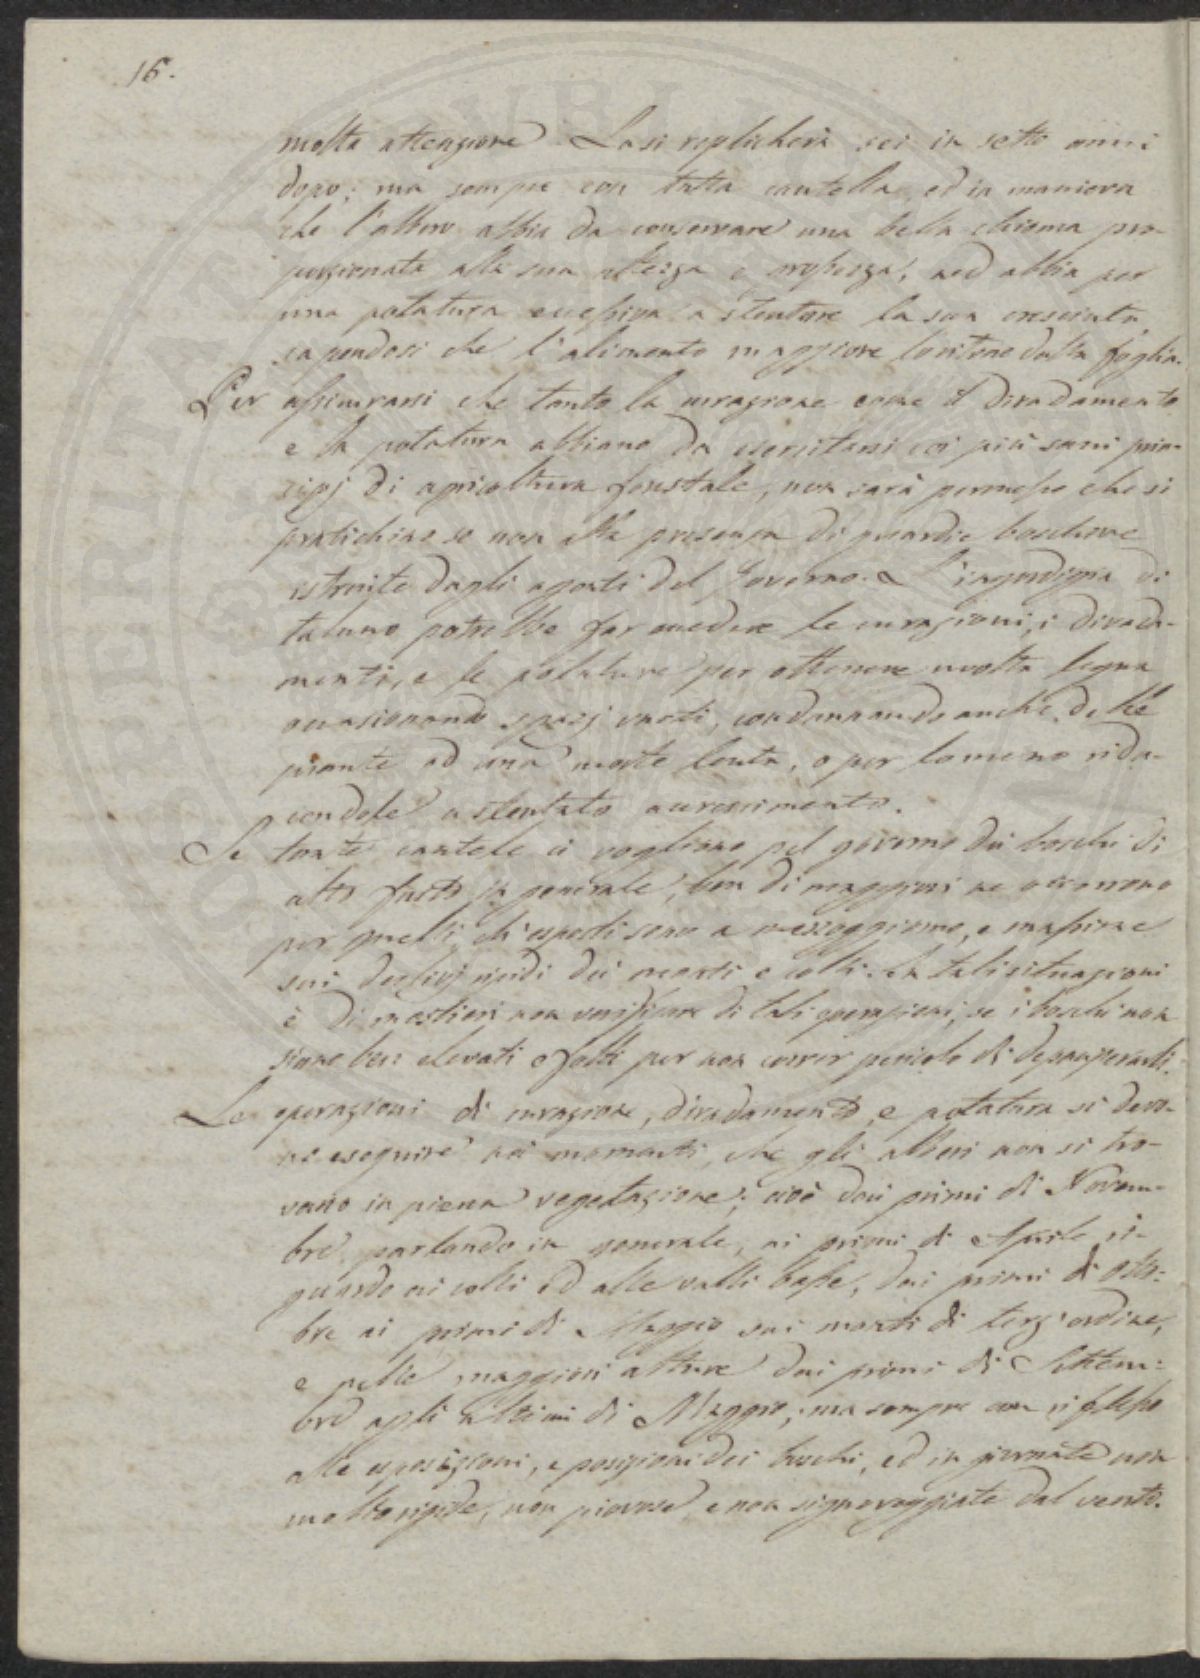 16.
molta attenzione. La si replicherà sei in sette anni
dopo; ma sempre con tutta cautella, ed in maniera
che l'albero abbia da conservare una bella chioma pro-
porzionata alla sua altezza e grossezza, ned abbia per
una potatura eccessiva a stentare la sua cresciuta
sapendosi che l'alimento maggiore lo ritrae dalla foglia.
Per assicurarsi che tanto la curagione come il diradamento
e la potatura abbiano da esercitarsi coi più sani prin-
cipj di agricoltura forestale, non sarà permesso che si
pratichino se non alla presenza di guardie boschive
istruite dagli agenti del Governo. L'ingordigia di
taluno potrebbe far eccedere le curagioni, i dirada-
menti, e le potature per ottenere molta legna
occasionando spazj vuoti, condannando anche delle
piante ad una morte lenta, o per lo meno ridu-
cendole a stentato accrescimento.
Se tante cautele ci vogliono pel governo dei boschi di
alto fusto in generale, ben di maggiori ne occorrono
per quelli, ch'esposti sono a mezzoggiorno, e massime
sui declivj ripidi dei monti e colli. In tali situazioni
è di mestieri non verificare di tali operazioni, se i boschi non
siano ben elevati e folti per non correr pericolo di deteriorarli.
Le operazioni di curagione, diradamento, e potatura si devo-
no eseguire nei momenti, che gli alberi non si tro-
vano in piena vegetazione; cioè dai primi di Novem-
bre, parlando in generale, ai primi di Aprile ri-
guardo ai colli ed alle valli basse, dai primi di Otto-
bre ai primi di Maggio sui monti di terz'ordine,
e nelle maggiori alture dai primi di Settem-
bre agli ultimi di Maggio; ma sempre con riflesso
alle esposizioni, e posizioni dei boschi, ed in giornate non
molto rigide, non piovose, e non signoreggiate dal vento.